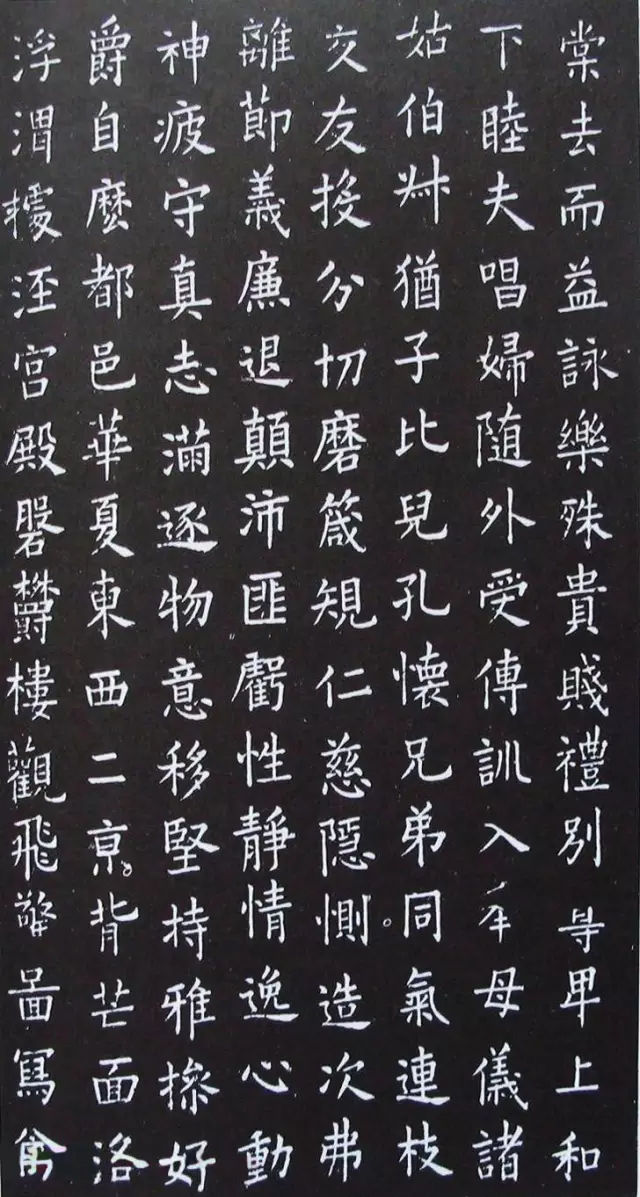 棠去而益詠樂殊貴賤禮別尊卑上和
下睦夫唱婦随外受傅訓入奉母儀諸
姑伯叔猶子比兒孔懐兄弟同氣連枝
交友投分切磨箴規仁慈隱惻造次弗
離節義廉退顛沛匪虧性靜情逸心動
神疲守真志滿逐物意移堅持雅操好
爵自縻都邑華夏東西二京背芒面洛
浮渭據涇宮殿磐欝樓觀飛驚圖寫禽